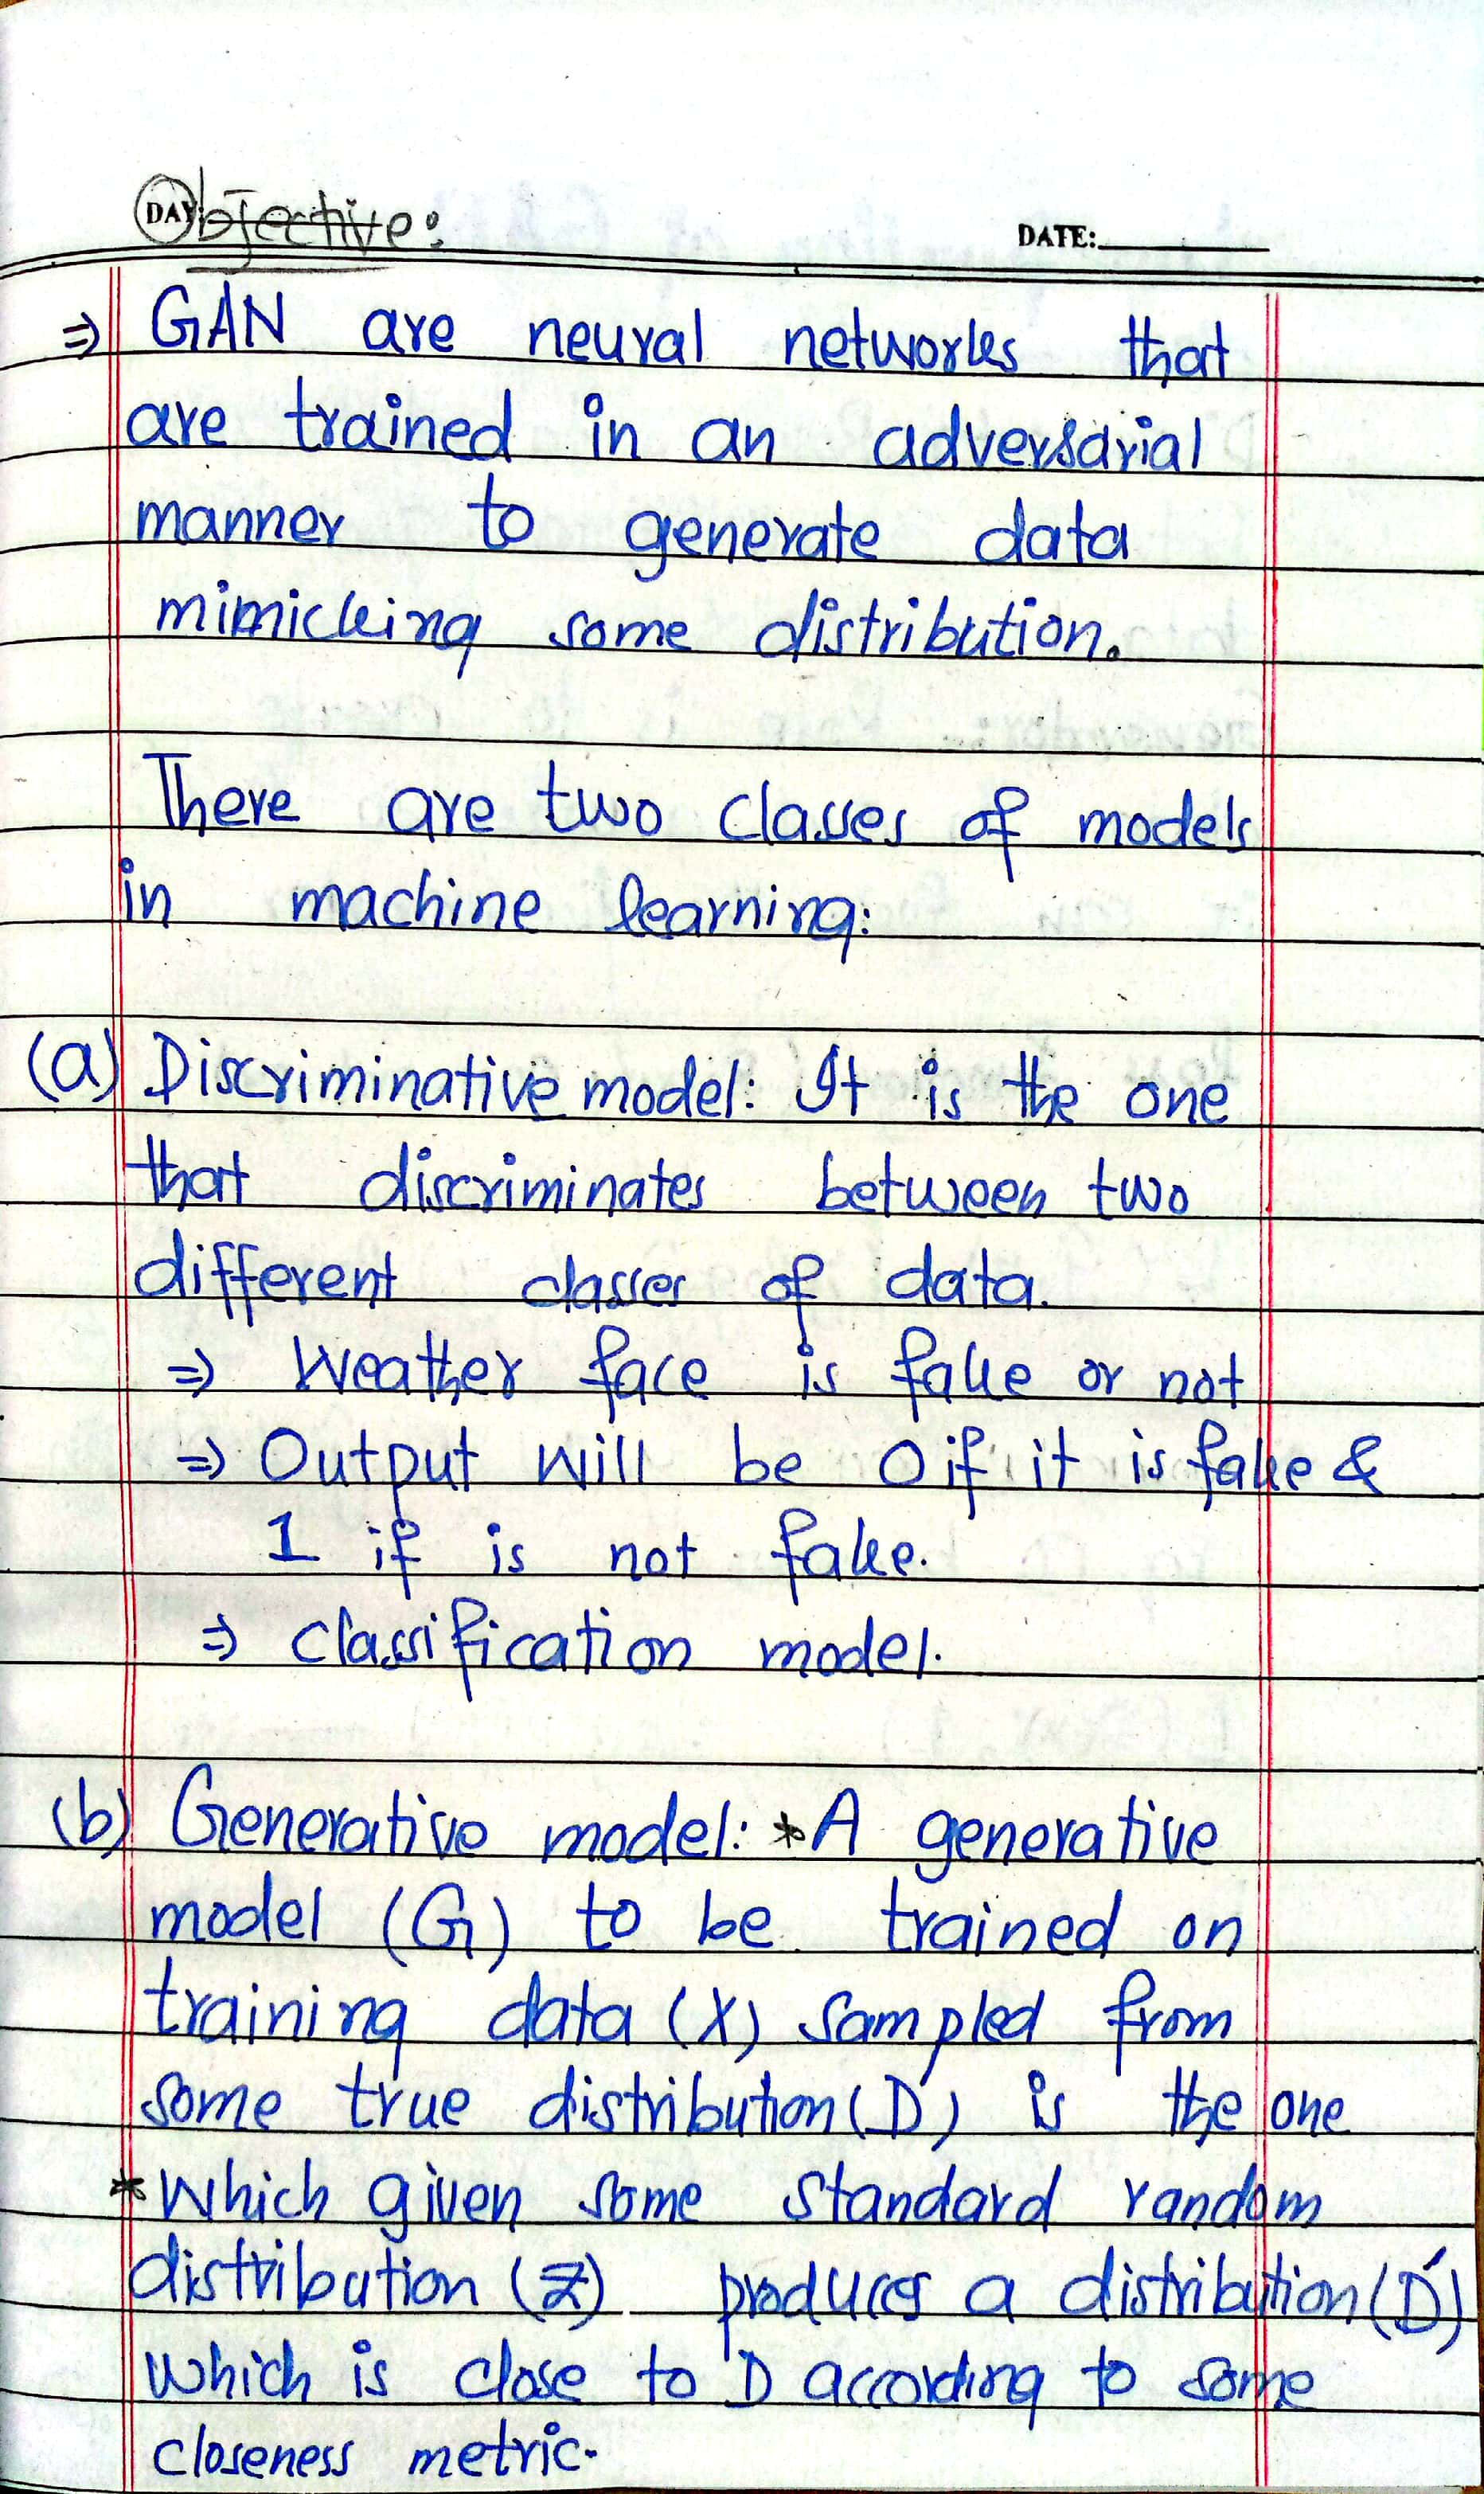 DAY:
Objective:
DATE:
⇒ GAN are neural networks that
are trained in an adversarial
manner to generate data
mimicking some distribution.
There are two classes of models
in machine learning:
(a) Discriminative model: It is the one
that discriminates between two
different classes of data.
⇒ Weather face is fake or not
⇒ Output will be 0 if it is fake &
1 if is not fake.
⇒ classification model.
(b) Generative model: *A generative
model (G) to be trained on
training data (X) sampled from
some true distribution (D') is the one
*Which given some standard random
distribution (Z) produces a distribution (D')
which is close to D according to some
closeness metric.